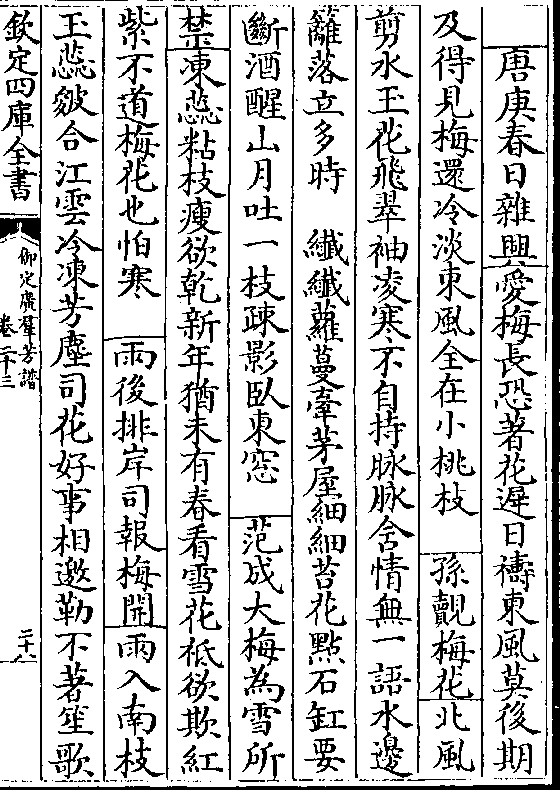 唐庚春日雜興愛梅長恐著花遲日禱東風莫後期
及得見梅還冷淡東風全在小桃枝　孫覿梅花北風
剪水玉花飛翠袖凌寒不自持脉脉含情無一語水邊
籬落立多時　纖纖蘿蔓牽茅屋細細苔花點石缸要
斷酒醒山月吐一枝疎影臥東窓　范成大梅為雪所
禁凍蕊粘枝瘦欲乾新年猶未有春看雪花祗欲欺紅
紫不道梅花也怕寒　雨後排岸司報梅開雨入南枝
玉蕊皴合江雲冷凍芳塵司花好事相邀勒不著笙歌
欽定四庫全書
御定廣羣芳譜
卷二十三
二十八